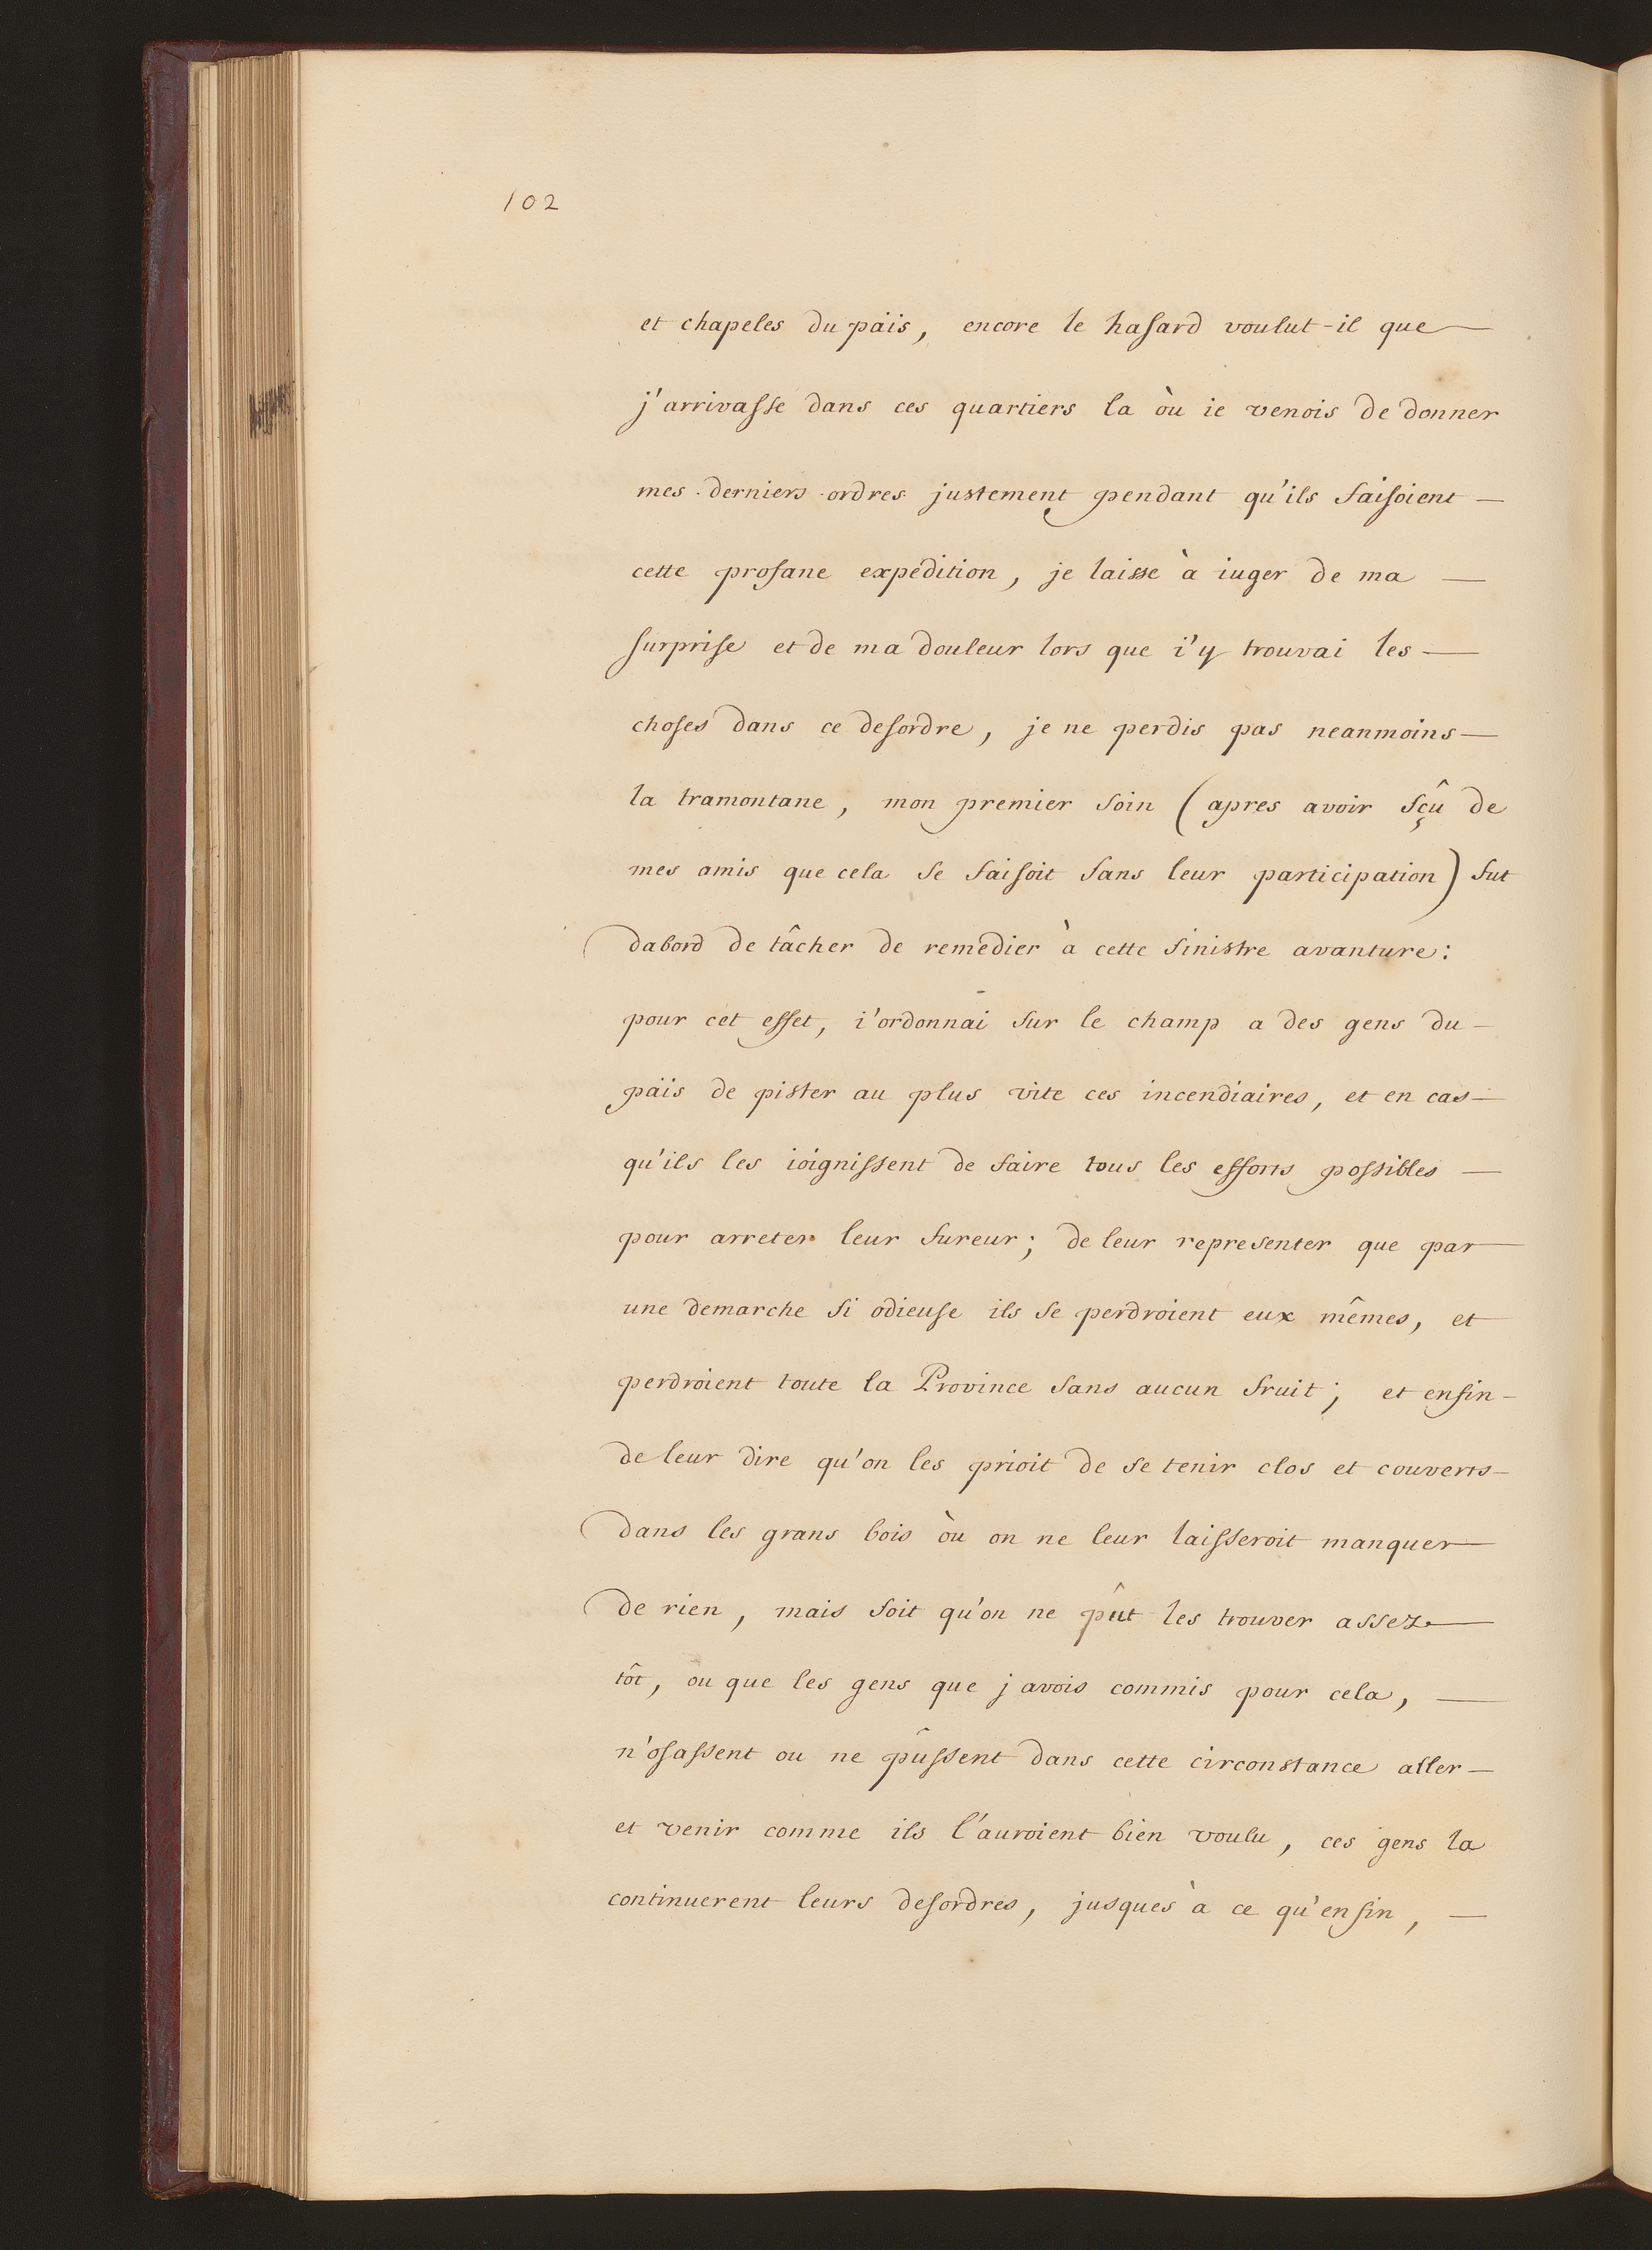 102
et chapeles du päis, encore le hasard voulut-il que
j'arrivasse dans ces quartiers la òu ie venois de donner
mes derniers ordres justement pendant qu'ils faisoient
cette profane expédition, je laisse à iuger de ma
surprise et de ma douleur lors que i'y trouvai les
choses dans ce desordre, je ne perdis pas neanmoins
la tramontane, mon premier soin (apres avoir sçû de
mes amis que cela se faisoit sans leur participation) fut
dabord de tâcher de remedier à cette sinistre avanture:
pour cet effet, i'ordonnai sur le champ a des gens du
päis de pister au plus vite ces incendiaires, et en cas
qu'ils les ioignissent de faire tous les efforts possibles
pour arreter leur fureur; de leur representer que par
une demarche si odieuse ils se perdroient eux mêmes, et
perdroient toute la Province sans aucun fruit; et enfin
de leur dire qu'on les prioit de se tenir clos et couverts
dans les grans bois òu on ne leur laisseroit manquer
de rien, mais soit qu'on ne pût les trouver assez
tôt, ou que les gens que j'avois commis pour cela,
n'osassent ou ne pûssent dans cette circonstance aller
et venir comme ils l'auroient bien voulu, ces gens la
continuerent leurs desordres, jusques à ce qu'enfin,